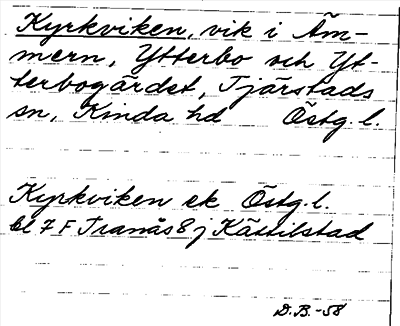 Kyrkviken, vik i Äm-
mern, Ytterbo och Yt-
terbogärdet, Tjärstads
sn, Kinda hd Östg.l.
Kyrkviken ek Östg.l.
bl 7 F Tranås 8 j Kättilstad
D.B.-58